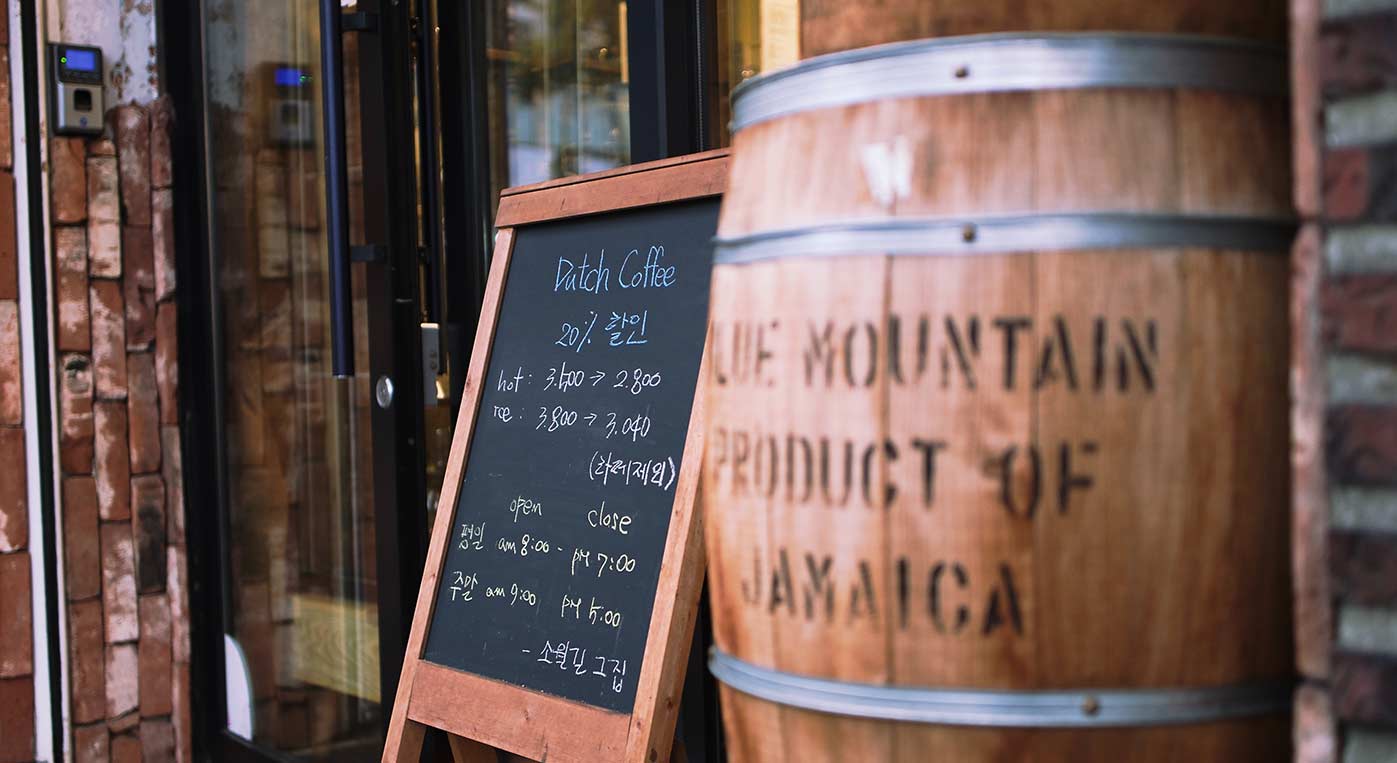 Dutch Coffee
20% 할인
hot: 3.500 → 2.800
ice: 3.800 → 3.040
(라떼제외)
open close
평일 am 8:00 - PM 7:00
주말 am 9:00 PM 5:00
- 소월길 그집
W
LUE MOUNTAIN
PRODUCT OF
JAMAICA